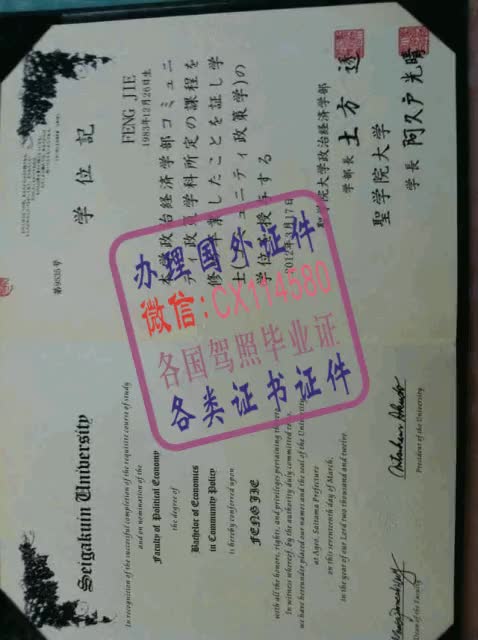 学位記
FENG JIE
1983年12月26日生
本学政治経済学部コミュニ
ティ政策学科所定の課程を
修め卒業したことを証し学
士(コミュニティ政策学)の
学位を授与する
2012年3月17日
聖学院大学政治経済学部
学部長 土方 透
聖学院大学
学長 阿久戸 光晴
第9835号
Seigakuin University
In recognition of the successful completion of the requisite course of study
and on nomination of the
Faculty of Political Economy
the degree of
Bachelor of Economics
in Community Policy
is hereby conferred upon
FENG JIE
with all the honors, rights, and privileges pertaining thereto.
In witness whereof, by the authority duly committed to us,
we have hereunder placed our names and the seal of the University
at Ageo, Saitama Prefecture
on this seventeenth day of March,
in the year of our Lord two thousand and twelve.
President of the University
Dean of the Faculty
办理国外证件
微信:CX114580
各国驾照毕业证
各类证书证件